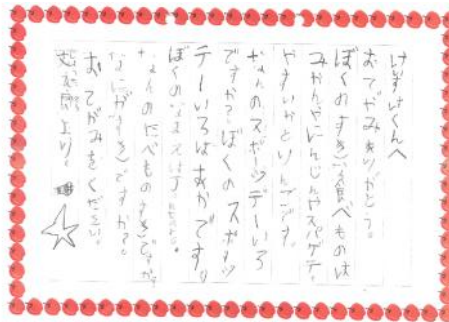 けいすけくんへ
おてがみありがとう。
ぼくのすきな食べものは
みかんやにんじんやスパゲティ
やすいかとりんごです。
なんのスポーツデーいろ
ですか?ぼくのスポーツ
デーいろはあかです。
ぼくの
なんのたべものすきですか。
なにがすきですか?。
おてがみをください。
より